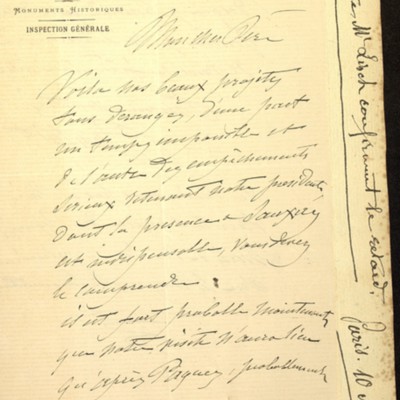 MONUMENTS HISTORIQUES
INSPECTION GÉNÉRALE
Mon cher Père
Voilà nos beaux projets
tous dérangés, d'une part
un temps impossible et
de l'autre des empêchements
sérieux retenant notre président,
dont la présence à
est indispensable, vous devez
le comprendre
il est fort probable maintenant
que notre visite n'aura lieu
qu'après Pâques, probablement
Mr Lisch confirmant le retard. Paris. 10